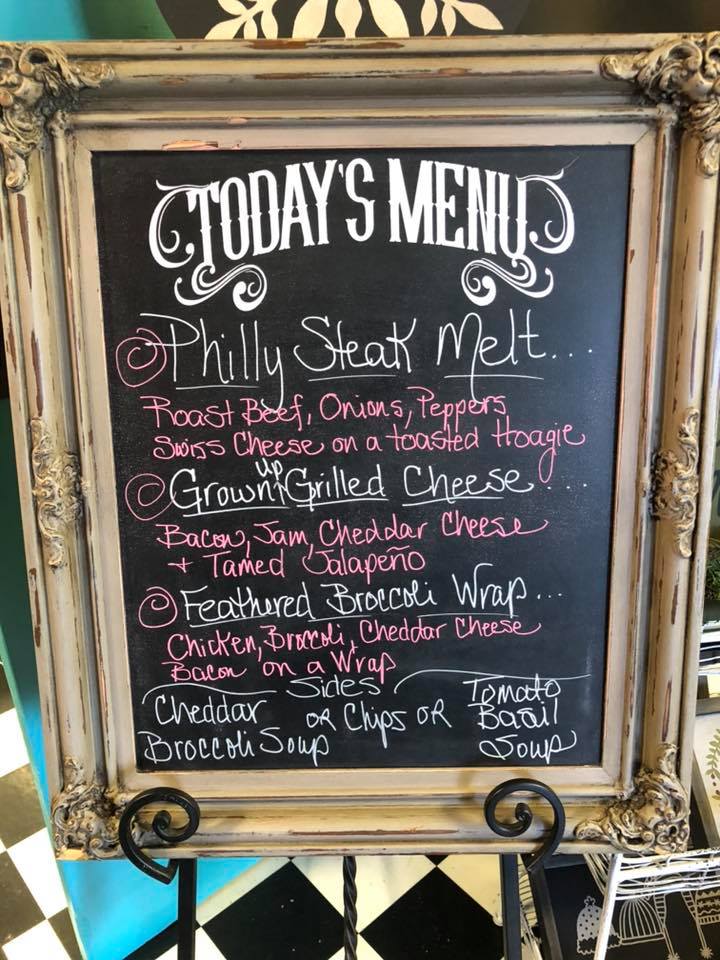 TODAY'S MENU
Philly Steak Melt...
Roast Beef, Onions, Peppers
Swiss Cheese on a toasted Hoagie
Grown up Grilled Cheese...
Bacon, Jam, Cheddar Cheese
+ Tamed Jalapeño
Feathered Broccoli Wrap...
Chicken, Broccoli, Cheddar Cheese
Bacon on a Wrap
Sides
Cheddar Broccoli Soup
OR Chips OR
Tomato Basil Soup